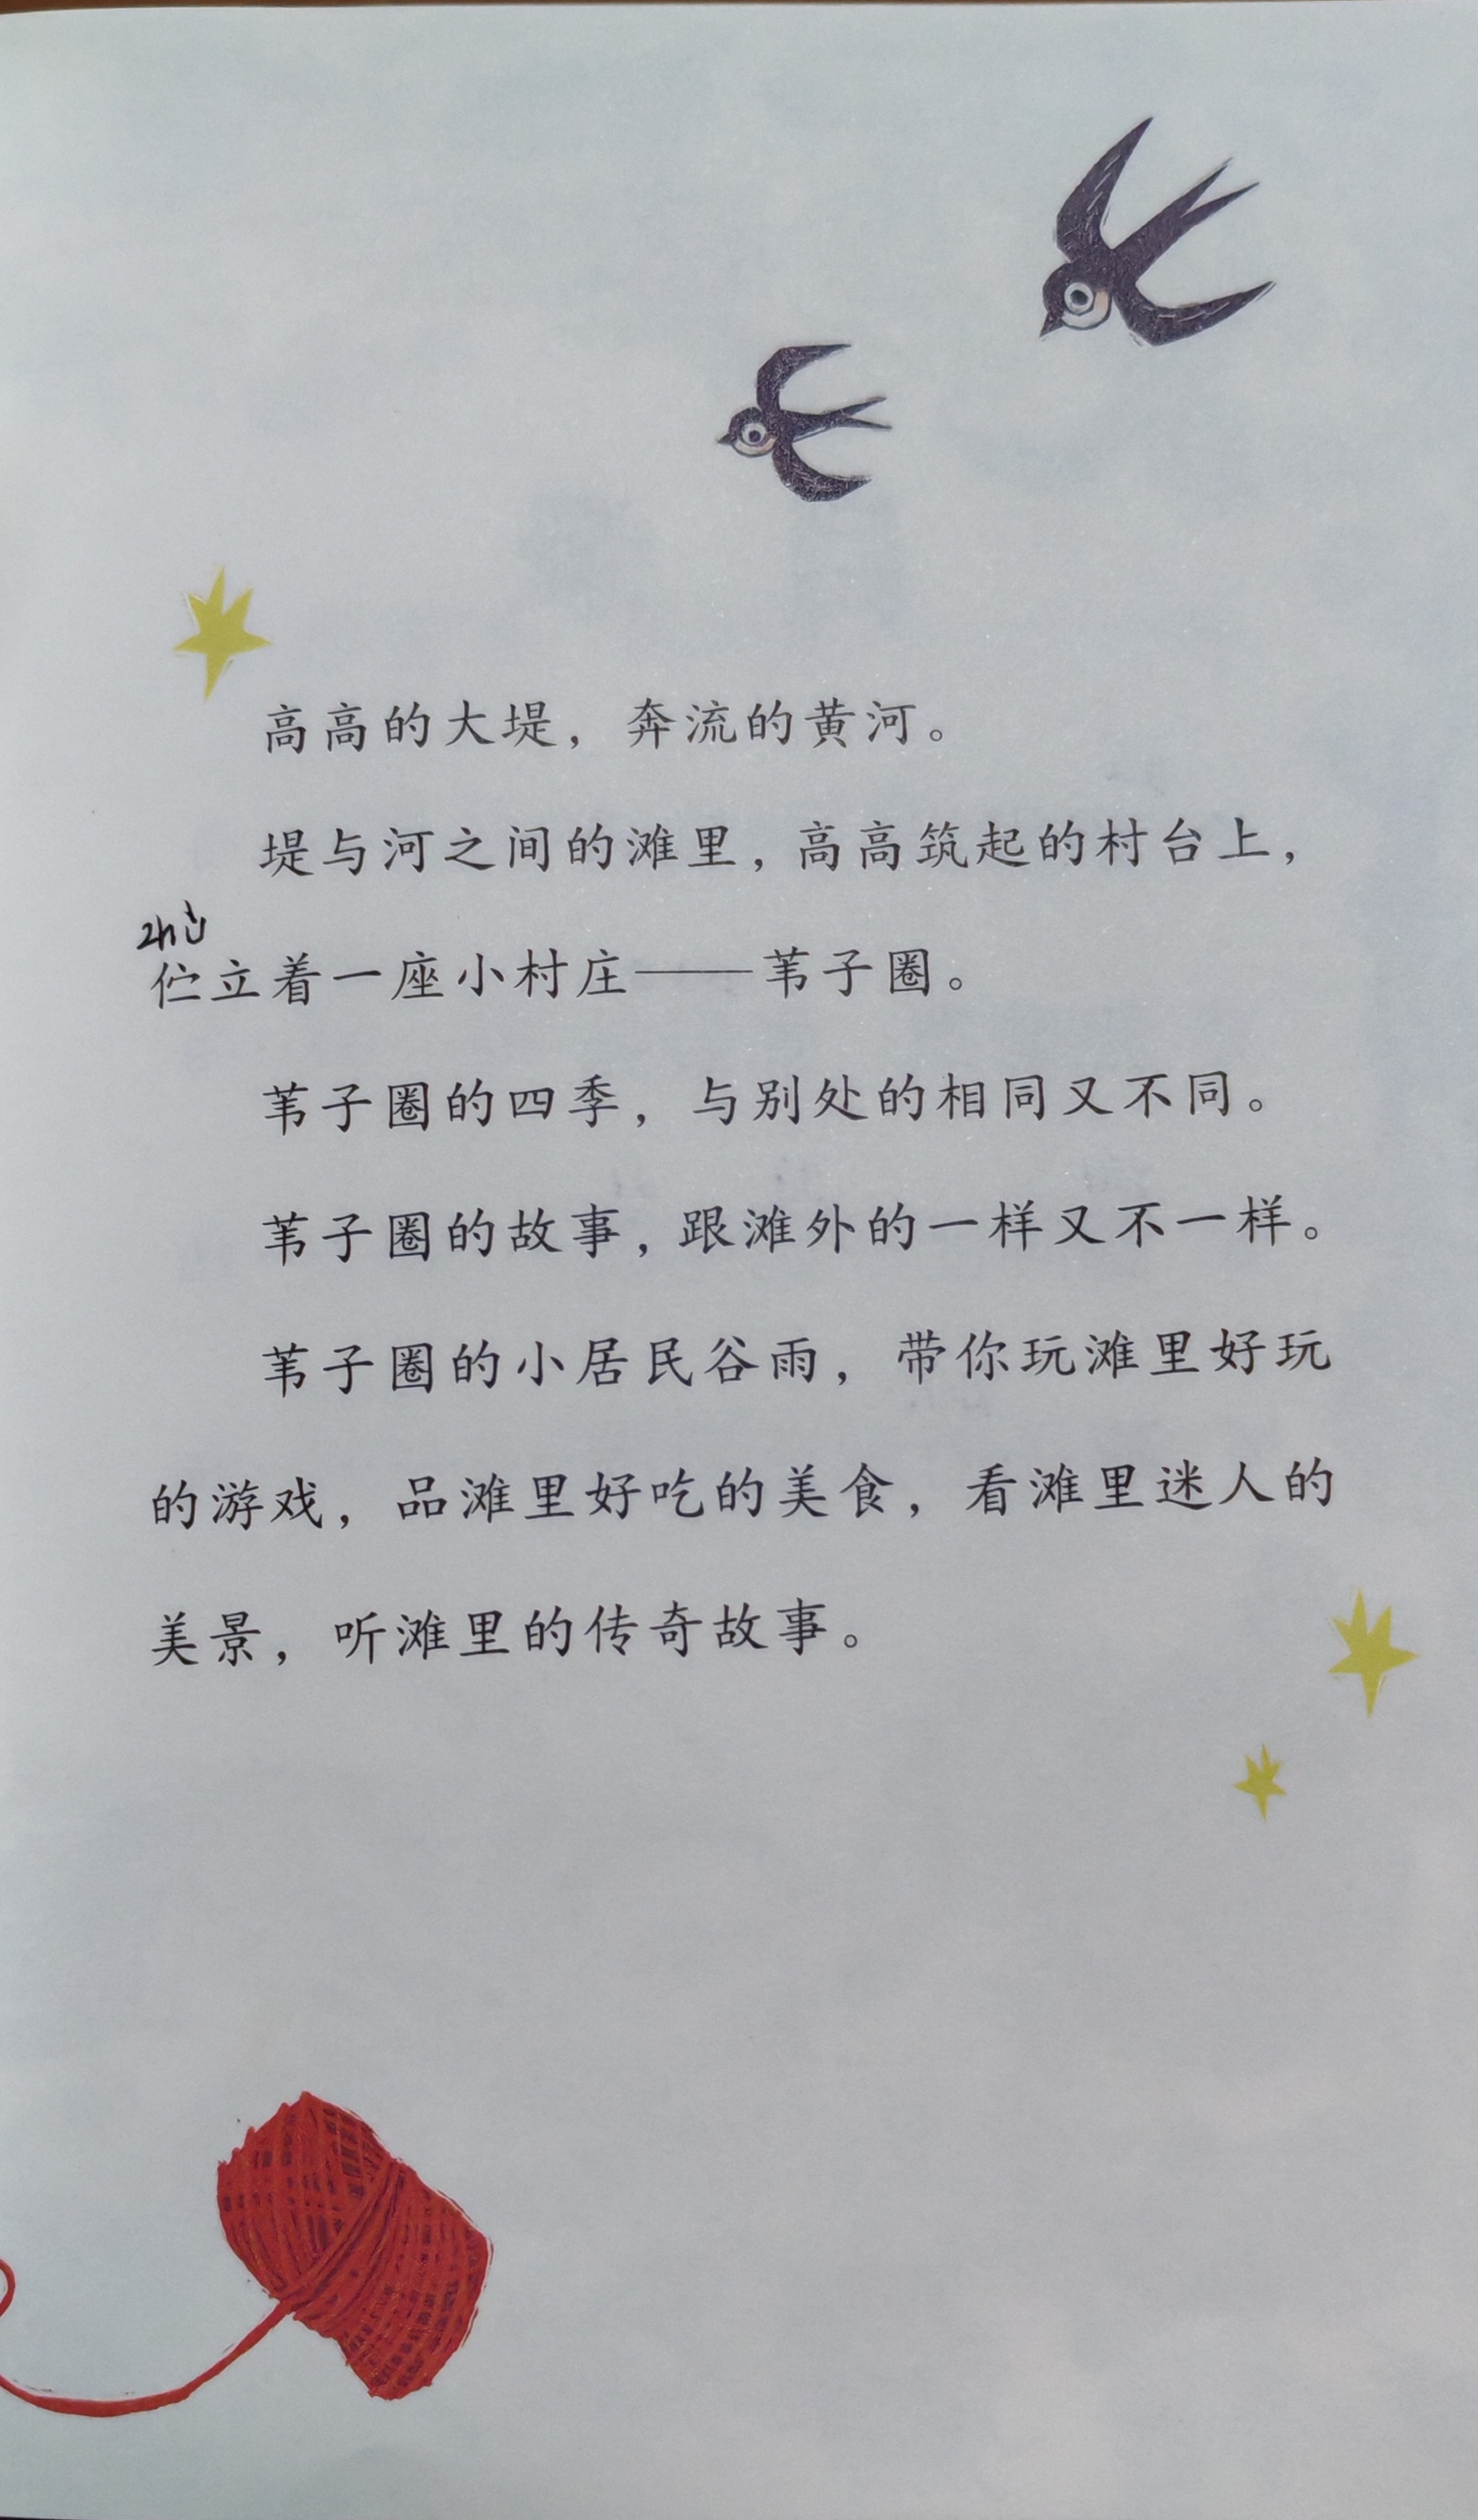 高高的大堤，奔流的黄河。
堤与河之间的滩里，高高筑起的村台上，
zhù
伫立着一座小村庄——苇子圈。
苇子圈的四季，与别处的相同又不同。
苇子圈的故事，跟滩外的一样又不一样。
苇子圈的小居民谷雨，带你玩滩里好玩
的游戏，品滩里好吃的美食，看滩里迷人的
美景，听滩里的传奇故事。